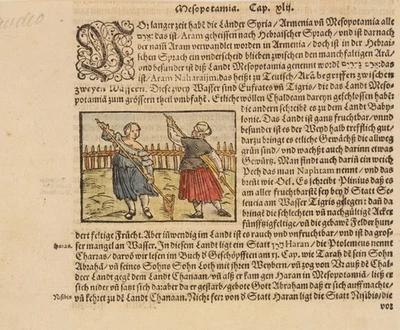 Mesopotamia. Cap. xlij.
Vor langer zeit habē die Länder Syria / Armenia vñ Mesopotamia alle
das ist / Aram geheissen nach Hebraischer Sprach / vnd ist darnach
der nam Aram verwandlet worden in Armenia / doch ist in der Hebrai-
schen Sprach ein vnderscheid bliben zwischen den manchfaltigen Arā /
vnd besunder ist diß Land Mesopotamia genennt word das
ist / Aram Naharaijm / das heißt zu Teutsch / Arā begriffen zwischen
zweyen Wassern. Diese zwey Wasser sind Eufrates vñ Tigris / die das Land Meso-
potamiā zum grössern theil vmbfaht. Etliche wöllen Chaldeam darzu geschlossen habē
die andern schreibt es zu dem Landt Baby-
lonie. Das Land ist gantz fruchtbar / vnnd
besunder ist es der Weyd halb trefflich gut /
darzu bringt es etliche Gewächß die allweg
grün sind / vnd wachßt auch darinn etwas
Gewürtz. Man findt auch darin ein weich
Pech das man Naphtam nennt / vnd das
breñt wie Oel. Es schreibt Plinius daß es
am aller fruchtbarst sey bey d Statt Se-
leucia am Wasser Tigris gelegen: dañ da
bringē die schlechten vñ nachgültige Äcker
fünffzigfeltige / vñ die gebawt Felder hun-
dert feltige Frücht. Aber inwendig im Landt ist es rauch vnd vnfruchtbar / vnd ist da gros-
Haran. ser mangel an Wasser. In diesem Landt ligt ein Statt Haran / die Ptolemeus nennt
Charras / daruō wir lesen im Buch d Geschöpfften am 11. Cap. wie Tarah dē sein Sohn
Abrahā / vñ seines Sohns Sohn Loth mit ihren Weybern / vñ zog von Vr auß dē Chal-
deer Landt gegē dem Landt Chanaan / vñ alß er kam gen Haran in Mesopotamia / ließ er
sich nider vñ saß sich da / aber da er gestarb / gebote Gott Abraham daß er sich auffmachte /
Nisibis vñ kehrt zu dē Landt Chanaan. Nicht fer vō d Statt Haran ligt die Statt Nisibis / die
vor